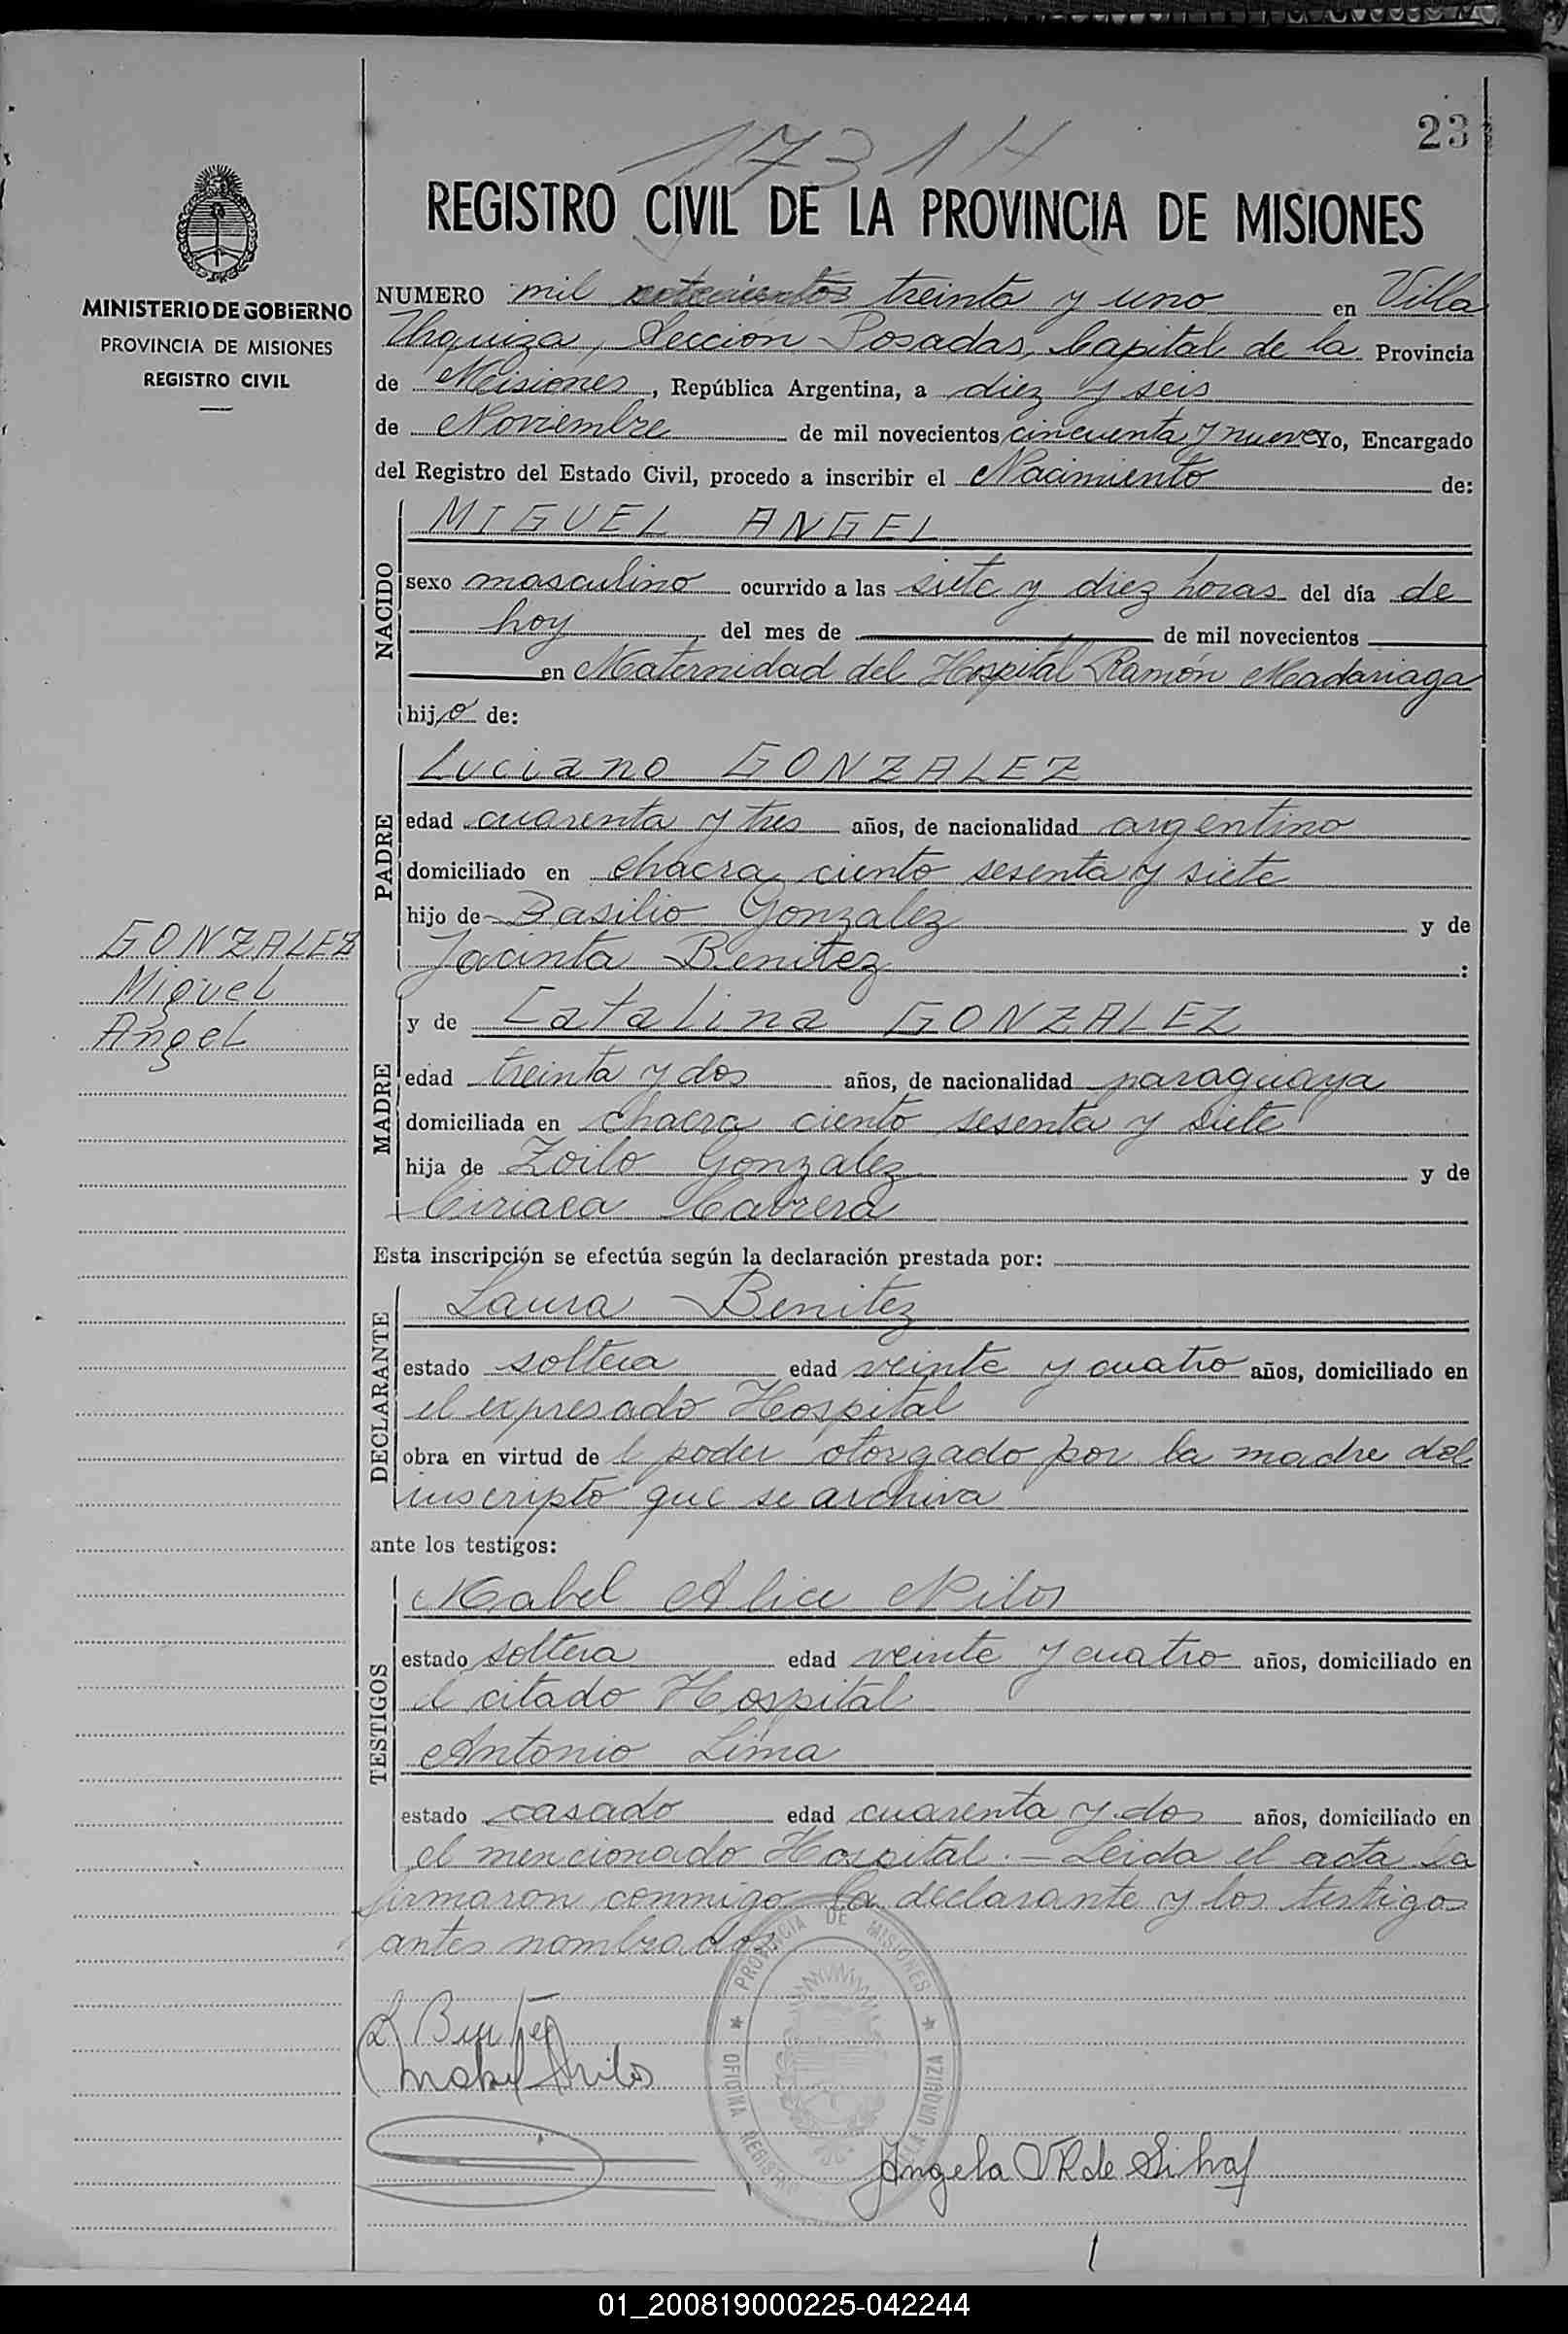 23
1731 H
REGISTRO CIVIL DE LA PROVINCIA DE MISIONES
MINISTERIO DE GOBIERNO
PROVINCIA DE MISIONES
REGISTRO CIVIL
NUMERO mil setecientos treinta y uno en Villa
Urquiza, Sección Posadas, Capital de la Provincia
de Misiones, República Argentina, a diez y seis
de Noviembre de mil novecientos cincuenta y nueve Yo, Encargado
del Registro del Estado Civil, procedo a inscribir el Nacimiento de:
NACIDO
MIGUEL ANGEL
sexo masculino ocurrido a las siete y diez horas del día de
hoy del mes de de mil novecientos
en Maternidad del Hospital Ramón Madariaga
hijo de:
PADRE
Luciano GONZALEZ
edad cuarenta y tres años, de nacionalidad argentino
domiciliado en chacra ciento sesenta y siete
hijo de Basilio Gonzalez y de
Jacinta Benitez :
GONZALEZ
Miguel
Angel
MADRE
y de Catalina GONZALEZ
edad treinta y dos años, de nacionalidad paraguaya
domiciliada en chacra ciento sesenta y siete
hija de Zoilo Gonzalez y de
Ciriaca Cabrera
Esta inscripción se efectúa según la declaración prestada por:
DECLARANTE
Laura Benitez
estado soltera edad veinte y cuatro años, domiciliado en
el expresado Hospital
obra en virtud de l poder otorgado por la madre del
inscripto que se archiva
ante los testigos:
TESTIGOS
Mabel Alice Nilos
estado soltera edad veinte y cuatro años, domiciliado en
el citado Hospital
Antonio Lima
estado casado edad cuarenta y dos años, domiciliado en
el mencionado Hospital. - Leida el acta la
firmaron conmigo la declarante y los testigos
antes nombrados.
PROVINCIA DE MISIONES
OFICINA REGISTRO VILLA URQUIZA
L Benitez
Mabel Nilos
Angela R de Silva
01_200819000225-042244